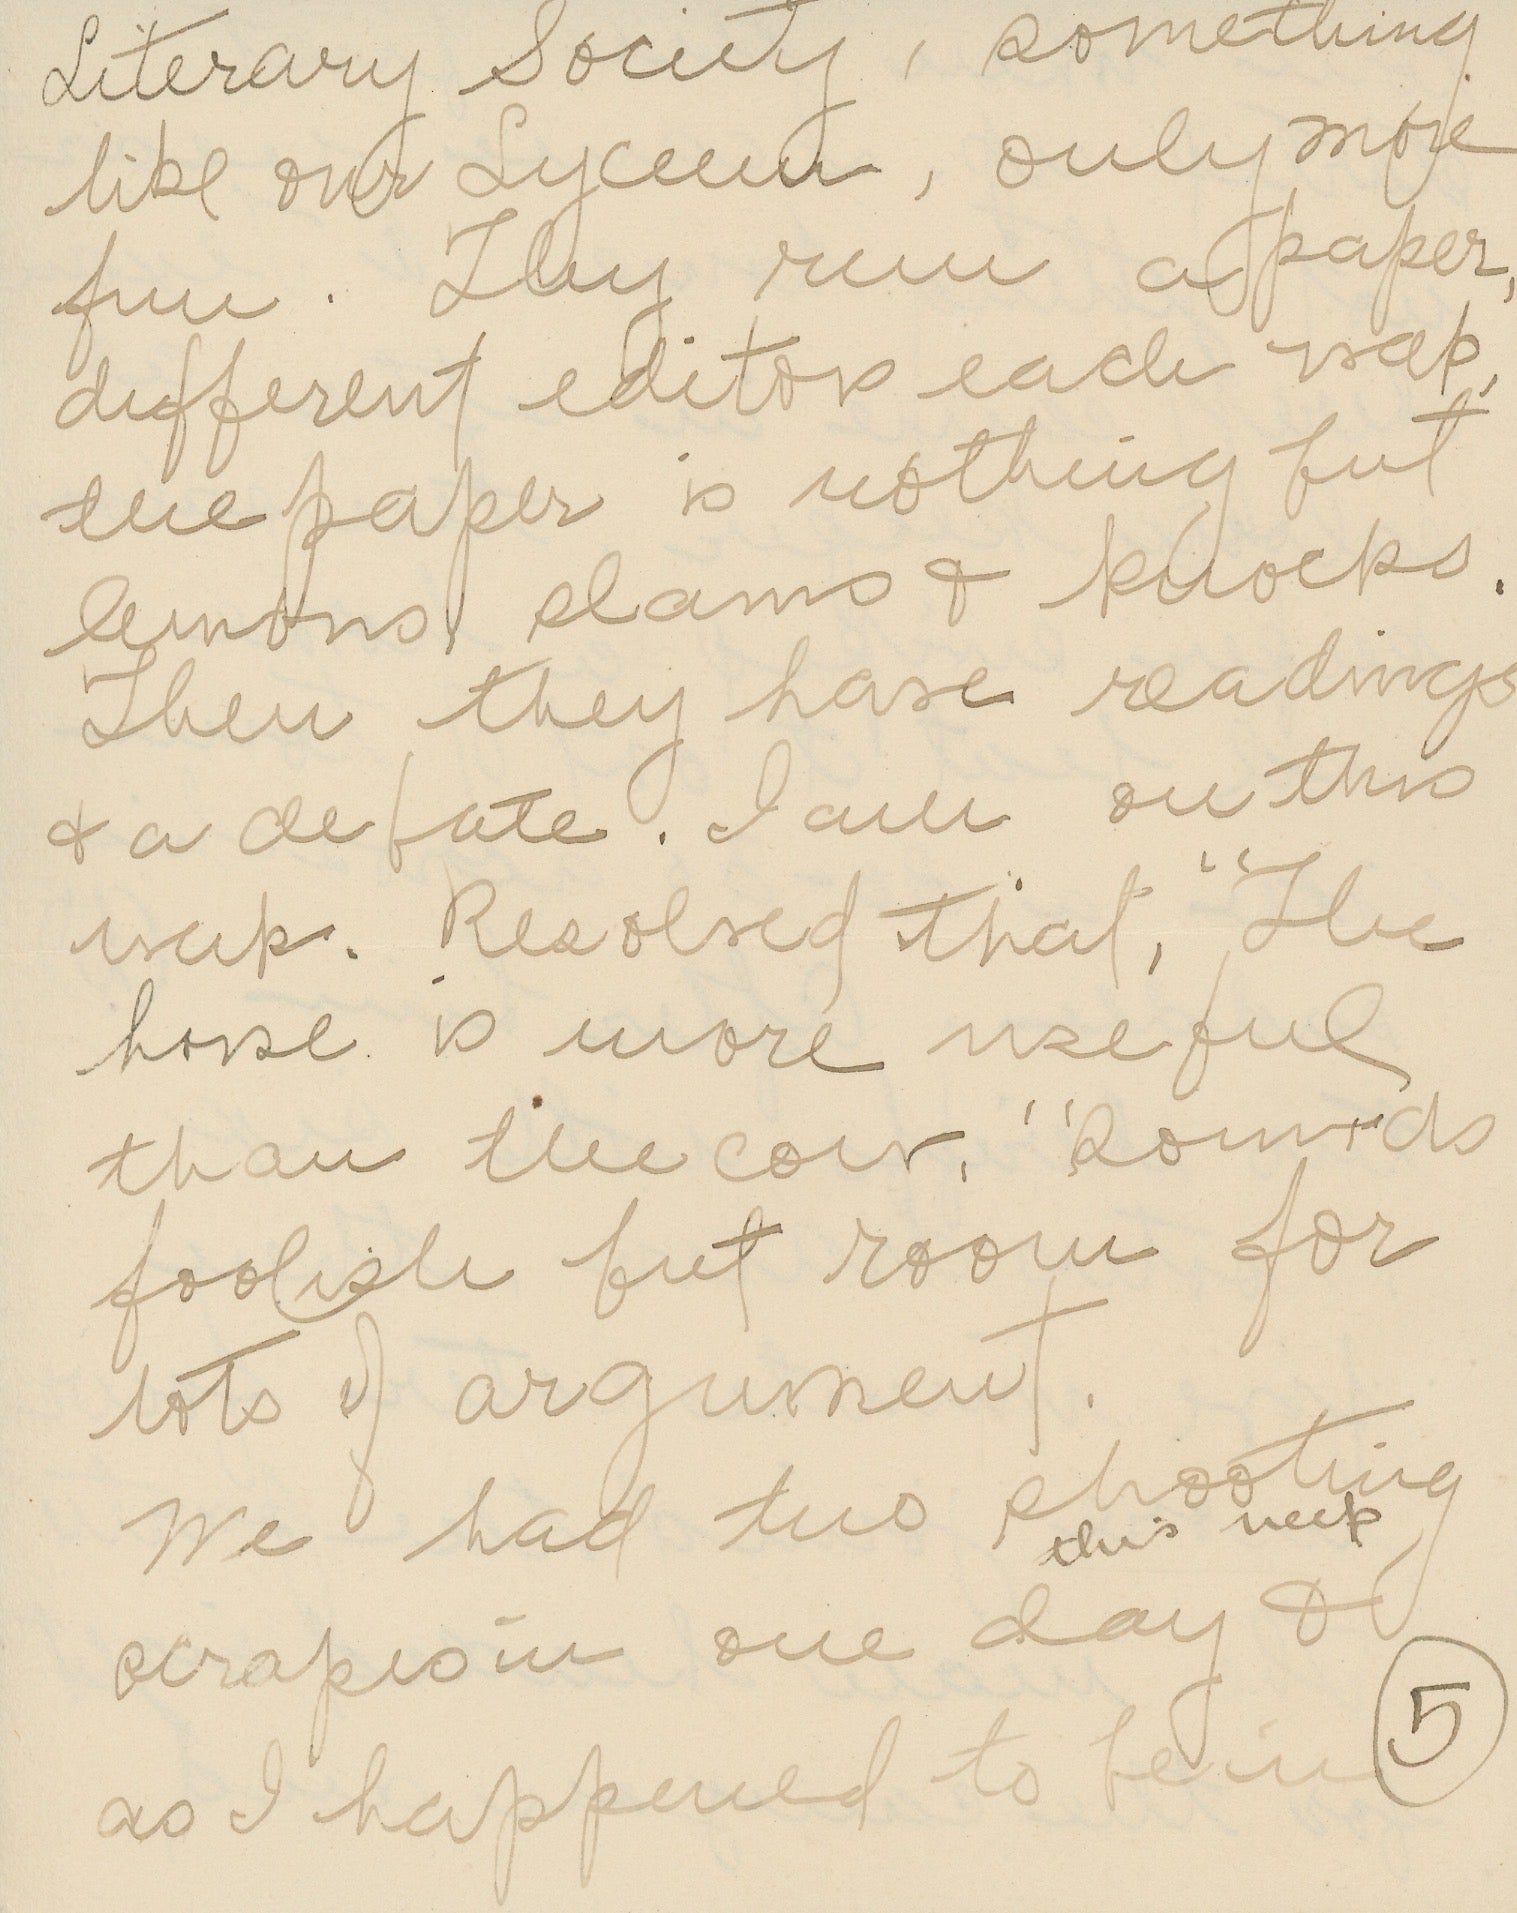 Literary Society, something
like our Lyceum, only more
fun. They run a paper,
different editors each week,
the paper is nothing but
lemons, slams & knocks.
Then they have readings
& a debate. I am on this
week. Resolved that, "The
horse is more useful
than the cow." Sounds
foolish but room for
lots of argument.
We had two shooting
this week
scrapes in one day &
as I happened to be in
5